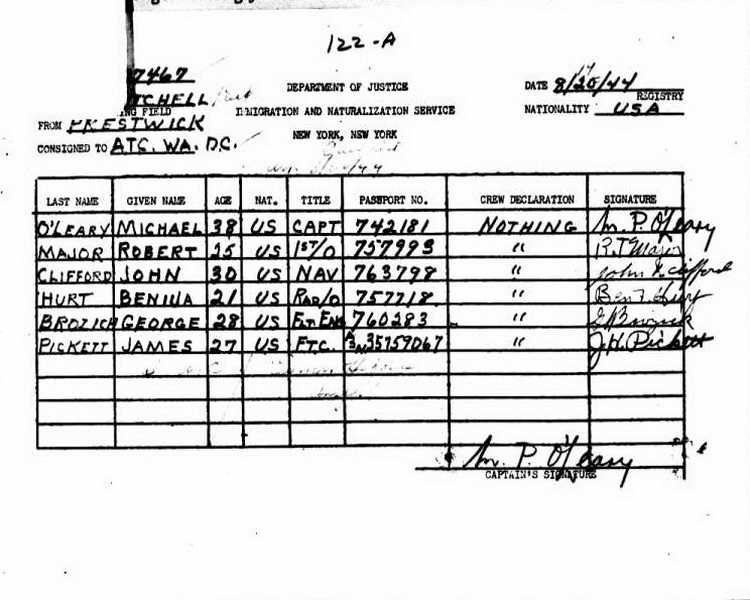 122-A
7467
TCHELL
ING FIELD
FROM PRESTWICK
CONSIGNED TO ATC. WA. D.C.
DEPARTMENT OF JUSTICE
IMMIGRATION AND NATURALIZATION SERVICE
NEW YORK, NEW YORK
DATE 8/20/44
REGISTRY
NATIONALITY USA
LAST NAME GIVEN NAME AGE NAT. TITLE PASSPORT NO. CREW DECLARATION SIGNATURE
O'LEARY MICHAEL 38 US CAPT 742181 NOTHING M. P. O'Leary
MAJOR ROBERT 25 US 1ST/O 757993 " R.T. Major
CLIFFORD JOHN 30 US NAV 763798 " John F. Clifford
HURT 21 US RAD/O 757718 " Ben F. Hurt
BROZICH GEORGE 28 US FLT ENG 760283 "
PICKETT JAMES 27 US FTC. ASN 35759067 " J.H. Pickett
M. P. O'Leary
CAPTAIN'S SIGNATURE